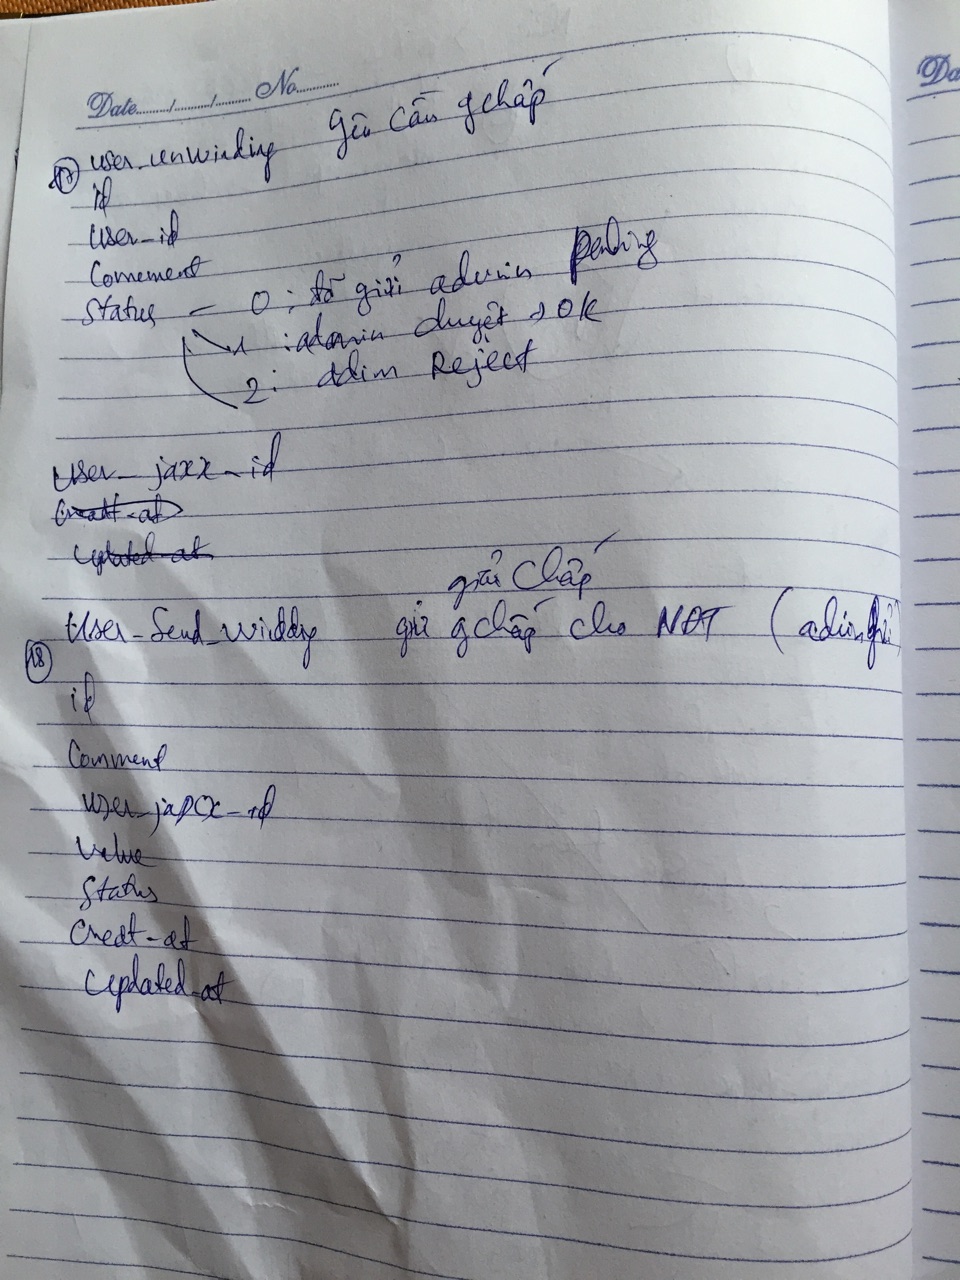 Date......../........../.......... No...........
17 user_unwinding gửi cần gchấp
id
User_id
Comement
Status – 0 : đã gửi admin pending
1 : admin duyệt → OK
2 : adim Reject
User_jaxx_id
Creatt_at
Updated_at
giải chấp
User_Send_Windding gửi gchấp cho (admin gửi)
18
id
Comment
user_jaxx_id
Value
Status
Creat_at
Updated_at
Da